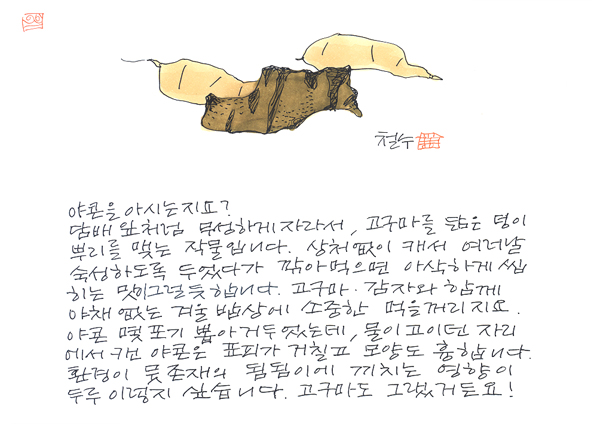 철수
야콘을 아시는지요?
담배 잎처럼 무성하게 자라서, 고구마를 닮은 덩이
뿌리를 맺는 작물입니다. 상처없이 캐서 여러날
숙성하도록 두었다가 깎아 먹으면 아삭하게 씹
히는 맛이 그럴듯 합니다. 고구마·감자와 함께
야채 없는 겨울 밥상에 소중한 먹을꺼리지요.
야콘 몇 포기 뽑아 거두었는데, 물이 고이던 자리
에서 키운 야콘은 표피가 거칠고 모양도 흉합니다.
환경이 뭇존재의 됨됨이에 끼치는 영향이
두루 이렇지 싶습니다. 고구마도 그렇거든요!